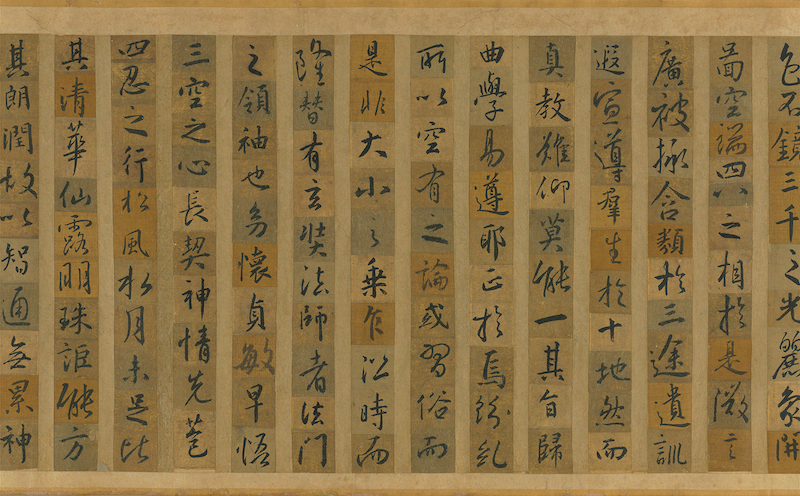 色不鏡三千之光麗象開
圖空端四八之相於是微言
廣被拯含類於三途遺訓
遐宣導羣生於十地然而
真教難仰莫能一其旨歸
曲學易遵耶正於焉紛糺
所以空有之論或習俗而
是非大小之乘乍沿時而
隆替有玄奘法師者法門
之領袖也幼懷貞敏早悟
三空之心長契神情先苞
四忍之行松風水月未足比
其清華仙露明珠詎能方
其朗潤故以智通無累神